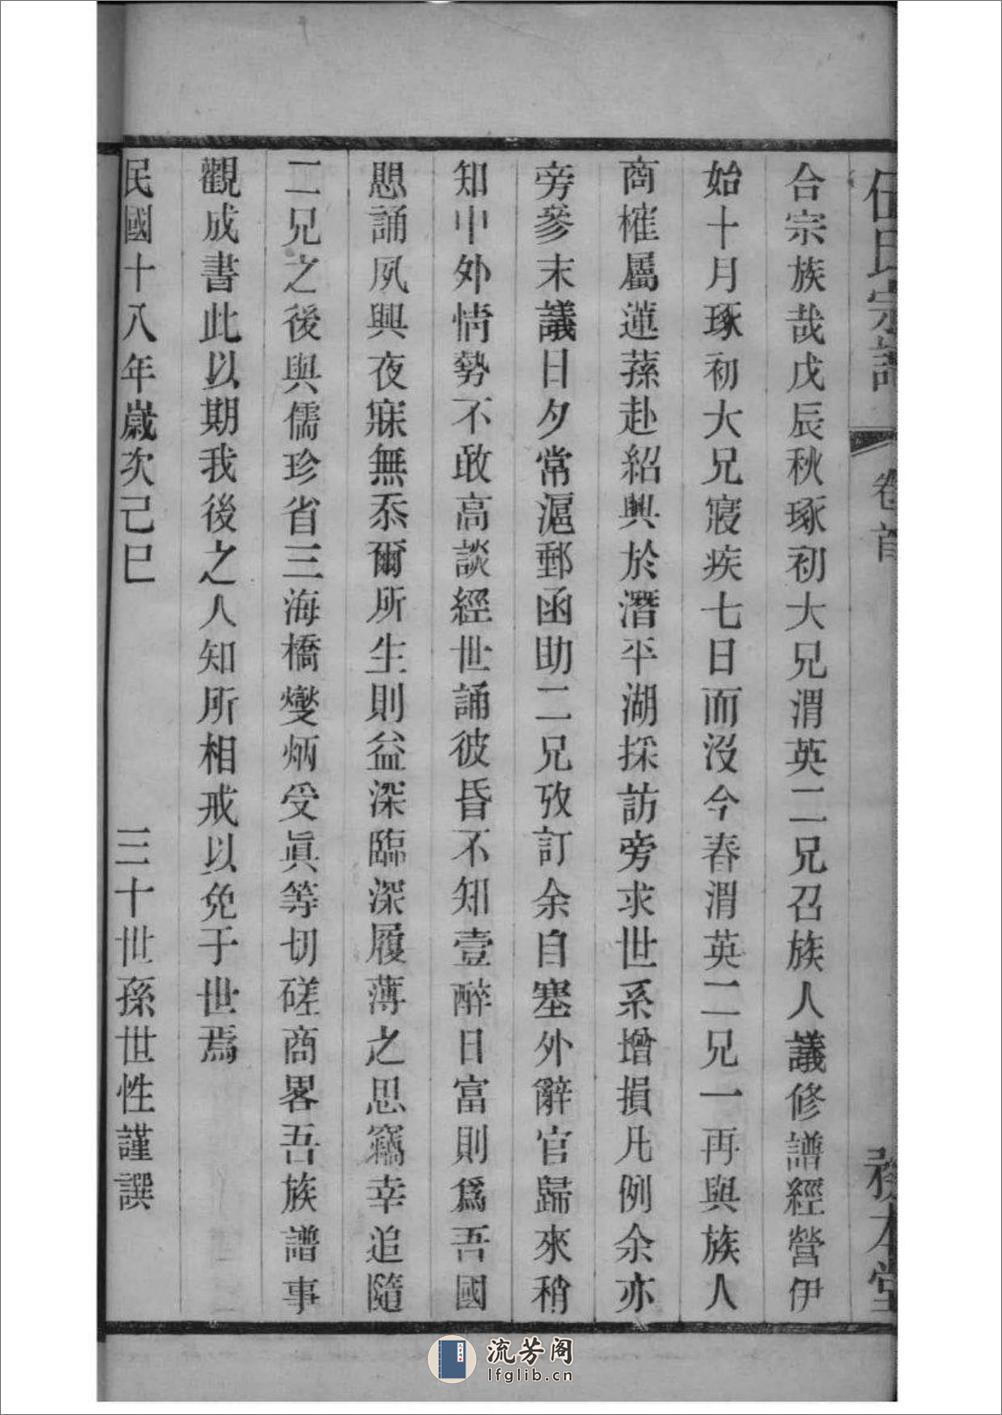 伍氏宗譜 卷首 務本堂
合宗族哉戊辰秋琢初大兄渭英二兄召族人議修譜經營伊
始十月琢初大兄寢疾七日而沒今春渭英二兄一再與族人
商榷屬蓮蓀赴紹興於潛平湖採訪旁求世系增損凡例余亦
旁參末議日夕常滬郵函助二兄攷訂余自塞外辭官歸來稍
知中外情勢不敢高談經世誦彼昏不知壹醉日富則爲吾國
愳誦夙興夜寐無忝爾所生則益深臨深履薄之思竊幸追隨
二兄之後與儒珍省三海橋燮炳受眞等切磋商畧吾族譜事
觀成書此以期我後之人知所相戒以免于世焉
民國十八年歲次己巳 三十世孫世性謹譔
流芳阁
lfglib.cn